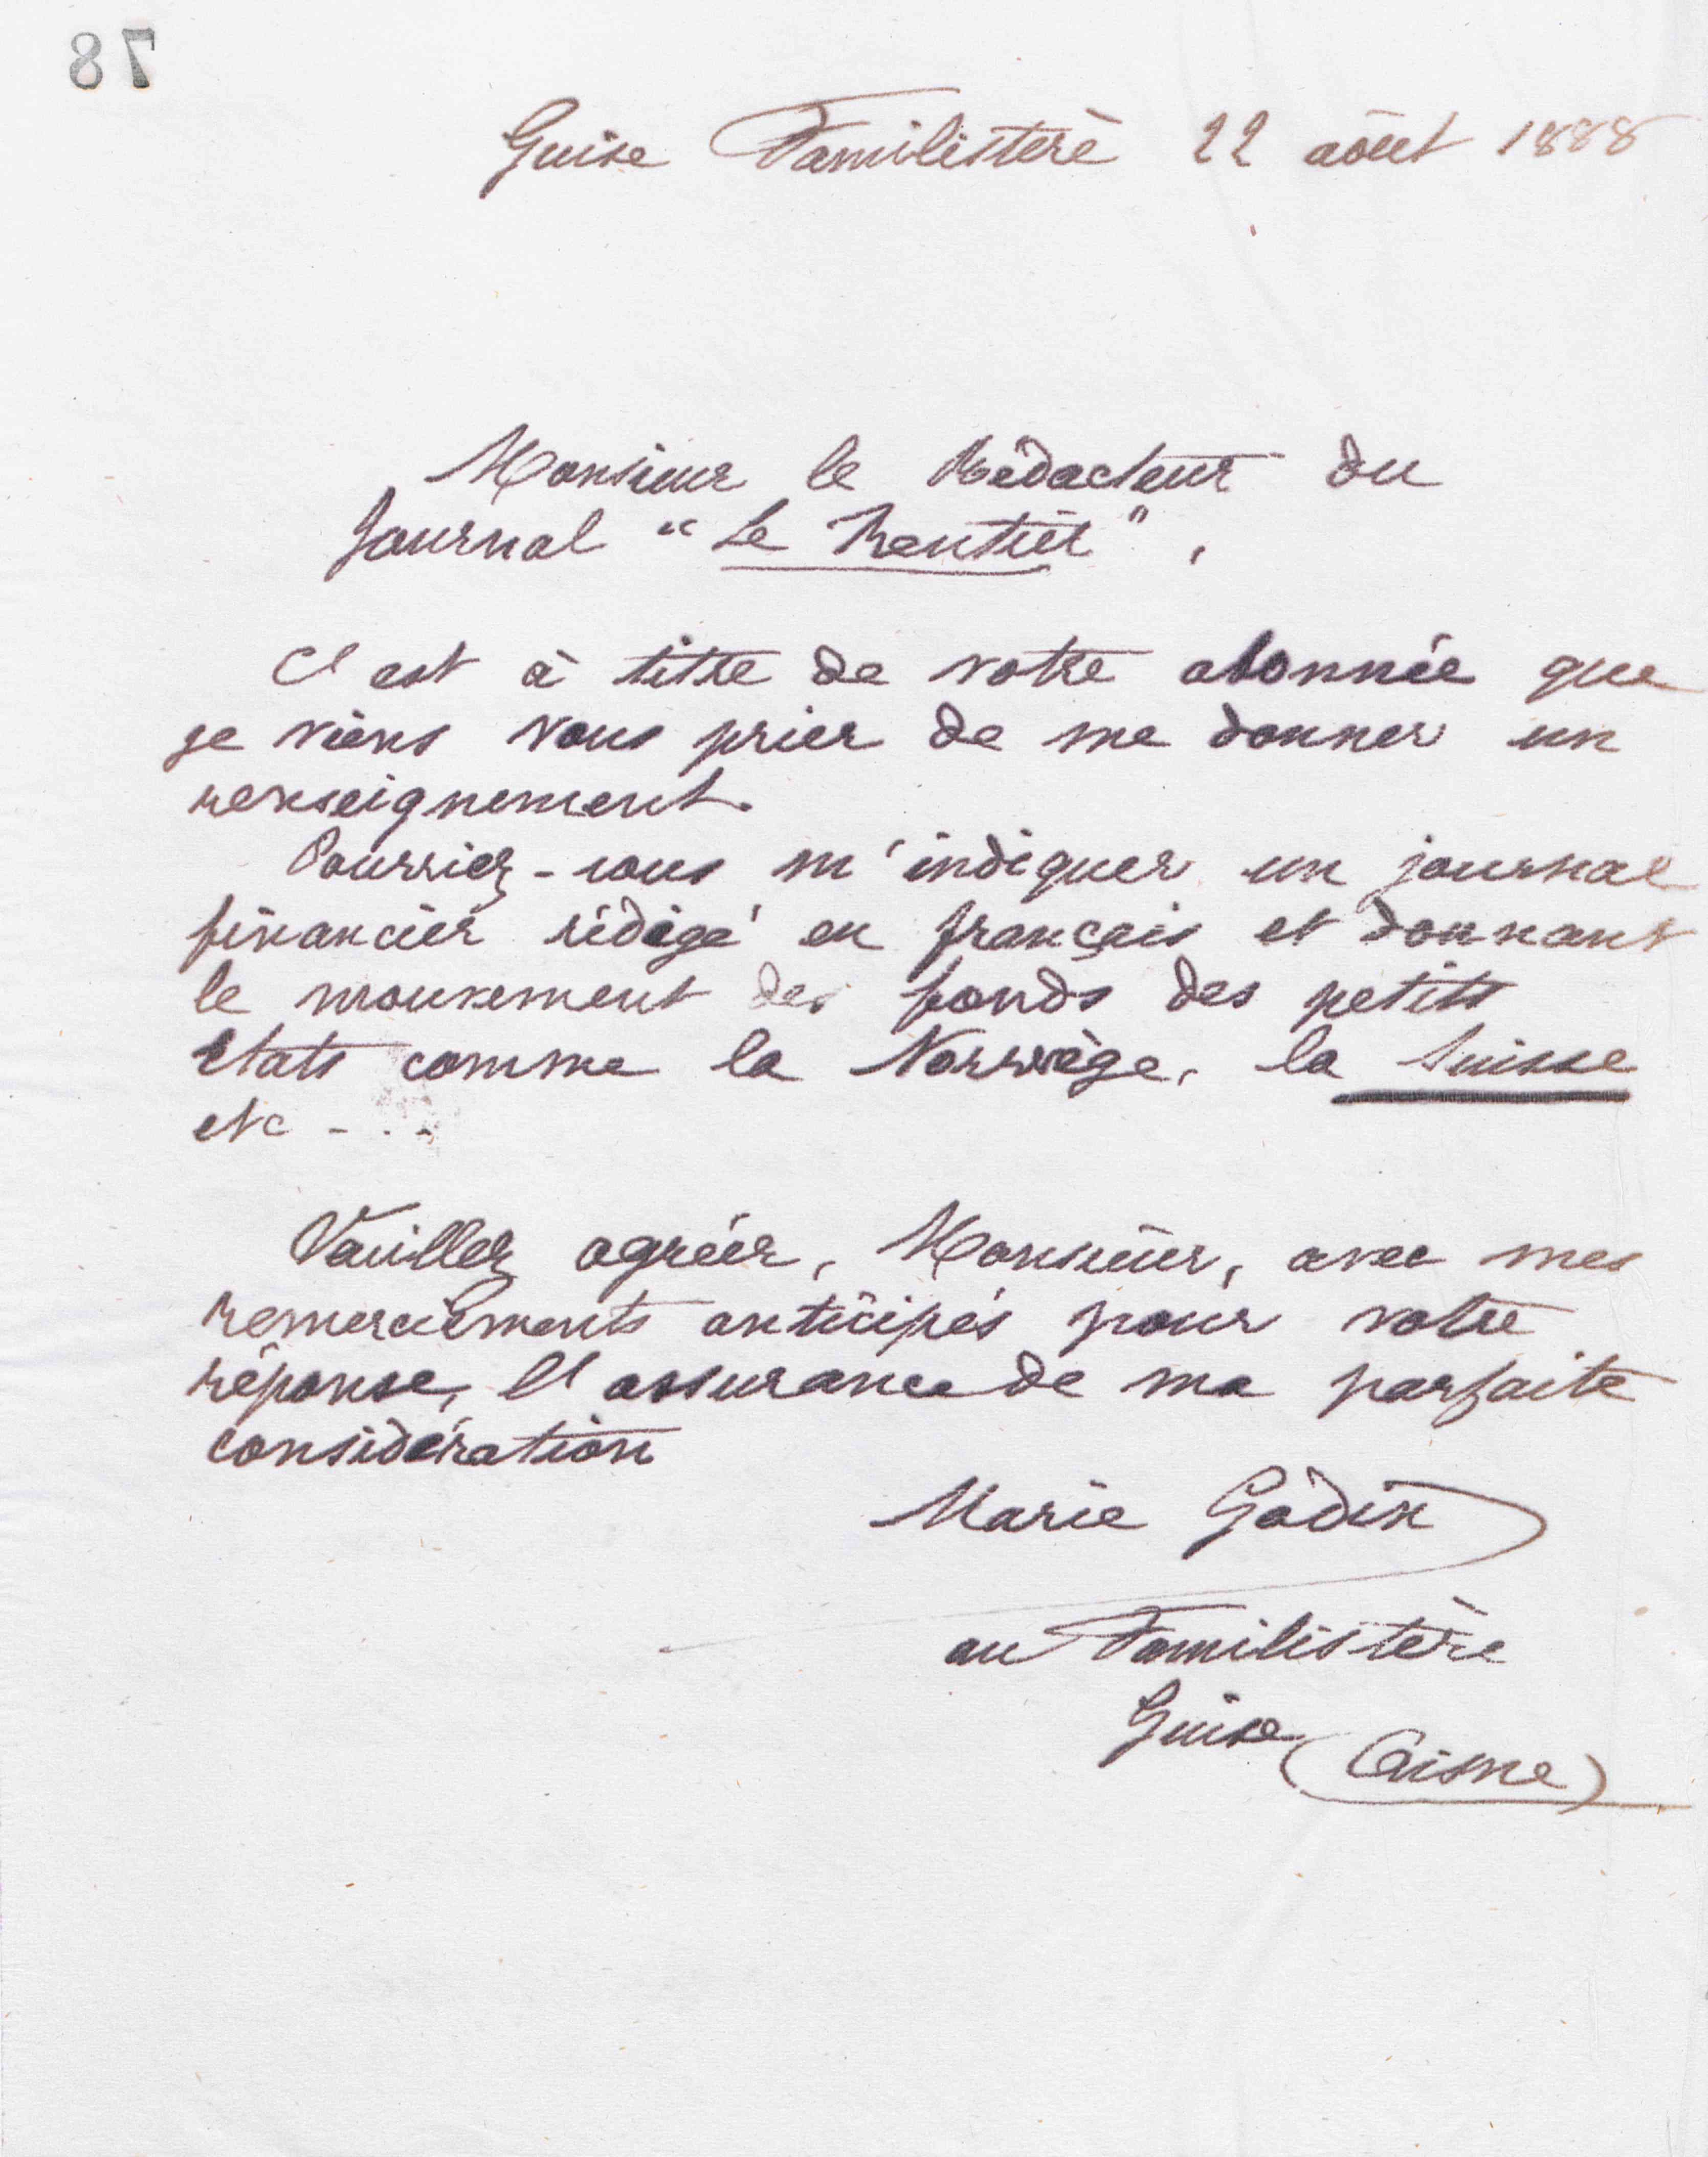 78
Guise Familistère 22 août 1888
Monsieur le Rédacteur du
Journal "Le Rentier",
C'est à titre de votre abonnée que
je viens vous prier de me donner un
renseignement.
Pourriez-vous m'indiquer un journal
financier rédigé en français et donnant
le mouvement des fonds des petits
Etats comme la Norwège, la Suisse
etc - . . .
Veuillez agréer, Monsieur, avec mes
remerciements anticipés pour votre
réponse, l'assurance de ma parfaite
considération
Marie Godin
au Familistère
Guise (Aisne)